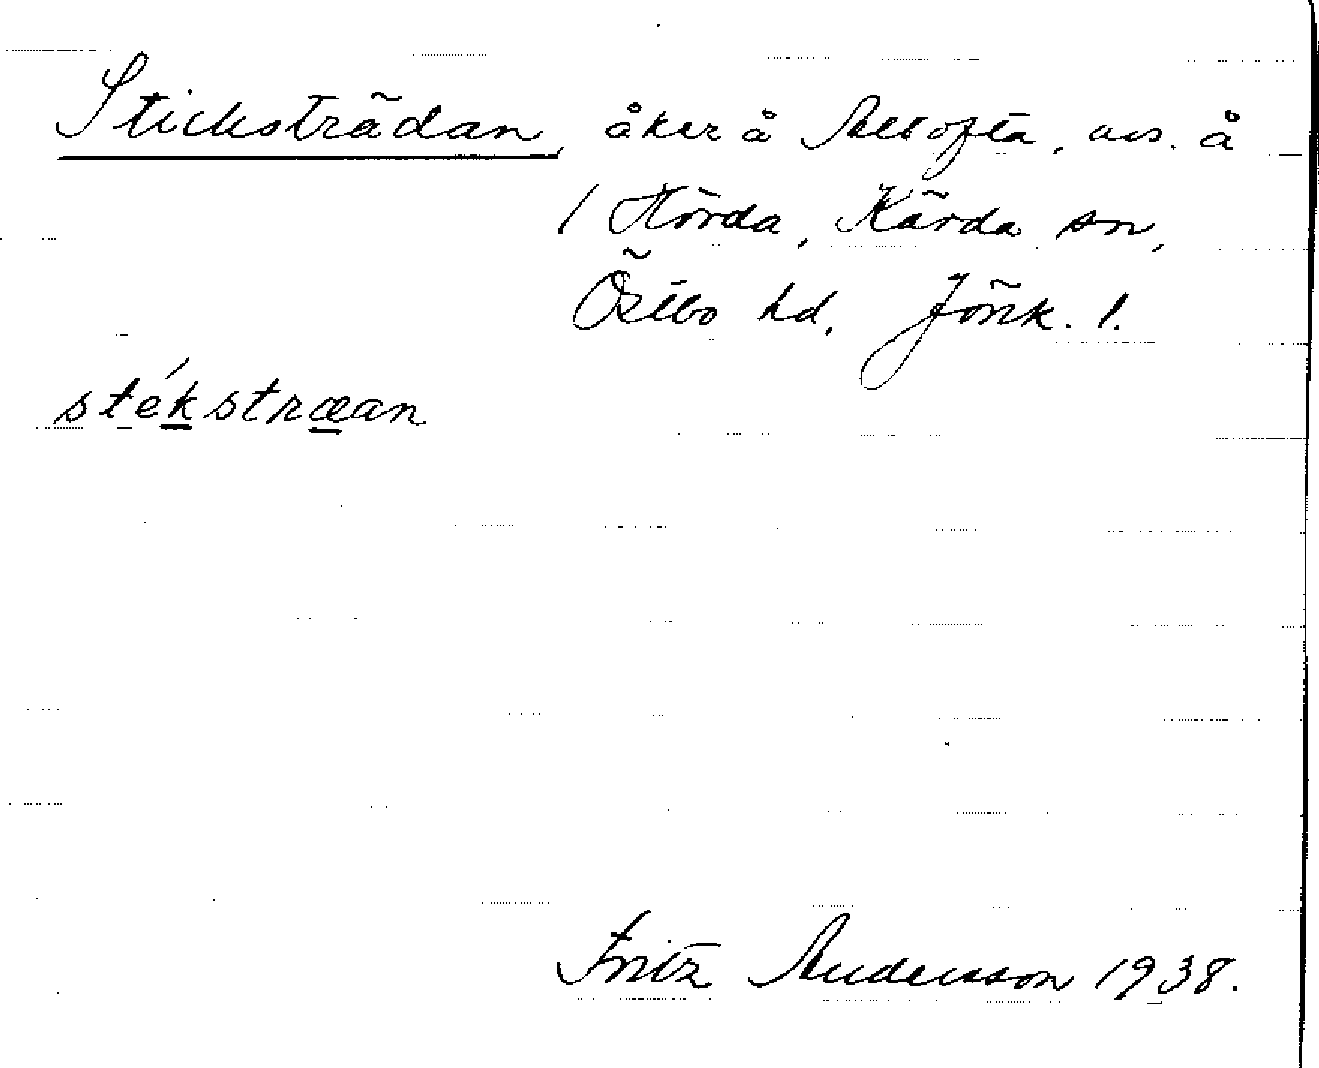 Sticksträdan, åker å Allofta, avs. å
1 Hörda, Kärda sn,
Östbo hd. Jönk. l.
stékstræan
Fritz Andersson 1938.